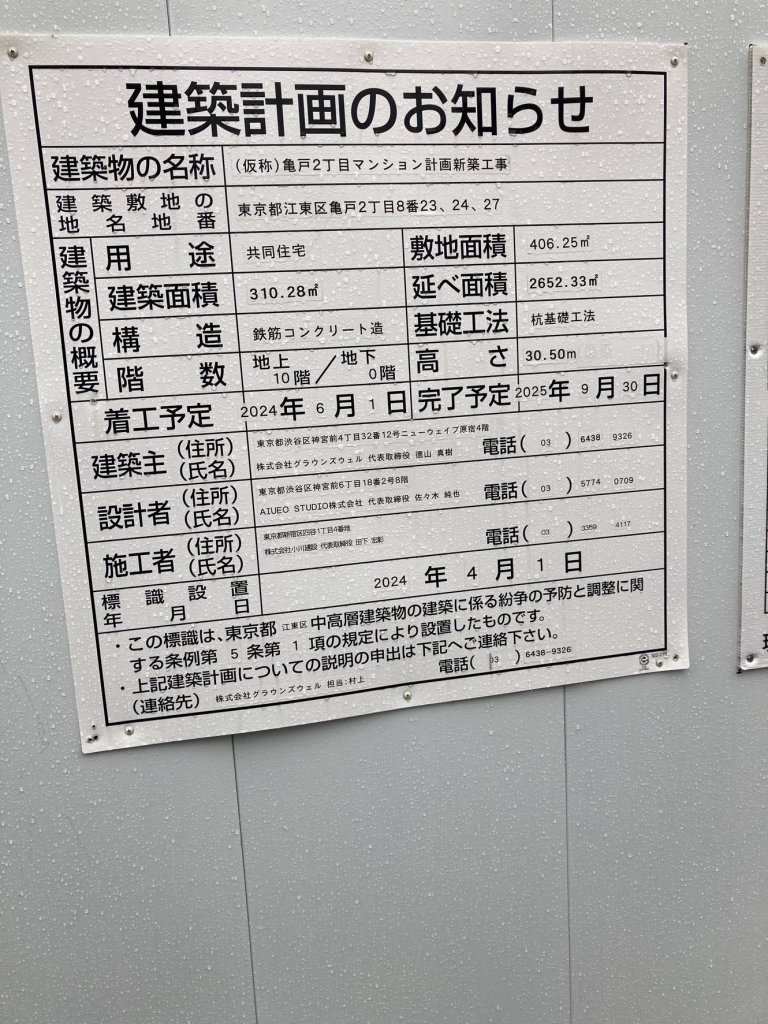 建築計画のお知らせ
建築物の名称 (仮称)亀戸2丁目マンション計画新築工事
建築敷地の地名地番 東京都江東区亀戸2丁目8番23、24、27
建築物の概要
用途 共同住宅 敷地面積 406.25㎡
建築面積 310.28㎡ 延べ面積 2652.33㎡
構造 鉄筋コンクリート造 基礎工法 杭基礎工法
階数 地上10階/地下0階 高さ 30.50m
着工予定 2024年6月1日 完了予定 2025年9月30日
建築主(住所)(氏名) 東京都渋谷区神宮前4丁目32番12号ニューウェイブ原宿4階
株式会社グラウンズウェル 代表取締役 徳山 真樹 電話(03)6438 9326
設計者(住所)(氏名) 東京都渋谷区神宮前6丁目18番2号8階
AIUEO STUDIO株式会社 代表取締役 佐々木 純也 電話(03)5774 0709
施工者(住所)(氏名) 東京都新宿区四谷1丁目4番地
株式会社小川建設 代表取締役 田下 宏彰 電話(03)3359 4117
標識設置年月日 2024年4月1日
・この標識は、東京都 江東区 中高層建築物の建築に係る紛争の予防と調整に関
する条例第5条第1項の規定により設置したものです。
・上記建築計画についての説明の申出は下記へご連絡下さい。
(連絡先) 株式会社グラウンズウェル 担当:村上 電話(03)6438-9326